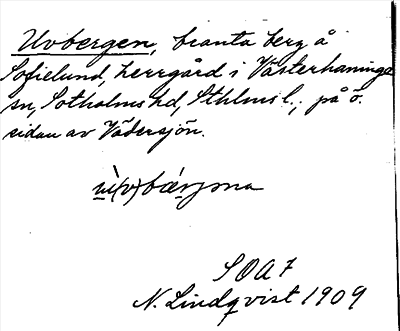 Uvbergen, branta berg å
Sofielund, herrgård i Västerhaninge
sn, Sotholms hd, Sthlms l., på ö.
sidan av Vädersjön.
SOA 7
N. Lindqvist 1909